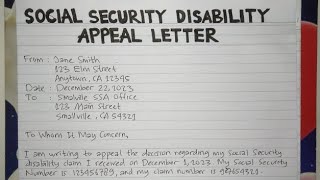 SOCIAL SECURITY DISABILITY
APPEAL LETTER
From : Jane Smith
123 Elm Street
Anytown, CA 12345
Date : December 22, 2023
To : Smalville SSA Office
123 Main Street
Smallville, CA 54321
To Whom It May Concern,
I am writing to appeal the decision regarding my Social Security
Disability claim I received on December 1, 2023. My Social Security
Number is 123456789, and my claim number is 987654321.